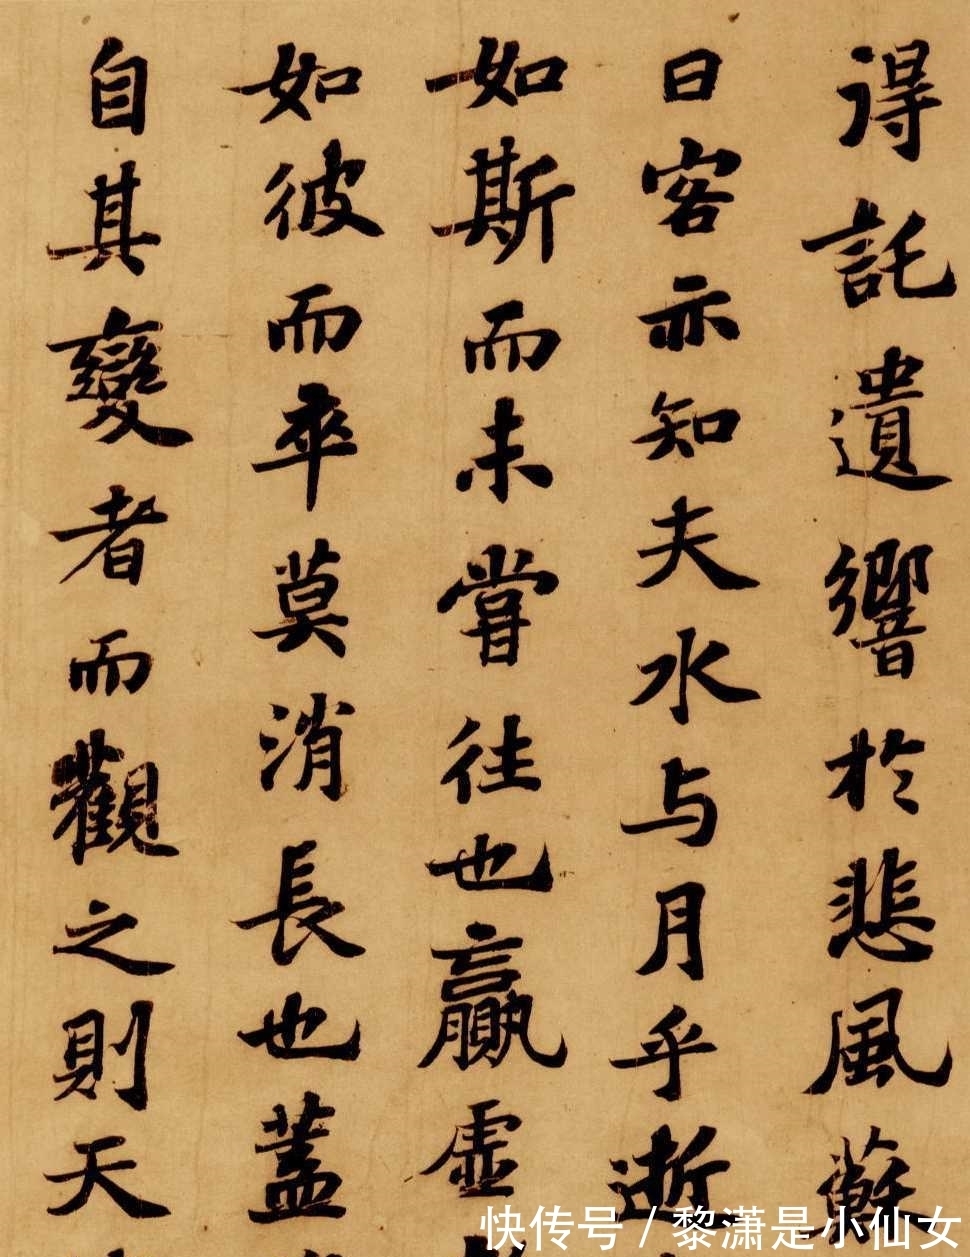 得託遺響於悲風蘇
曰客亦知夫水与月乎逝
如斯而未嘗往也贏虛
如彼而卒莫消長也蓋
自其變者而觀之則天
快传号 / 黎潇是小仙女